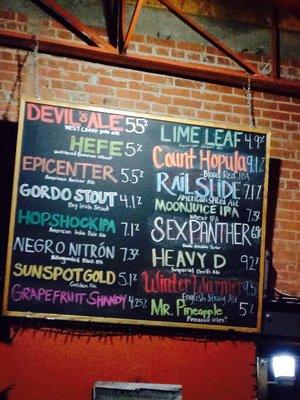 DEVIL'S ALE 5.5%
West Coast Pale Ale
HEFE 5%
Unfiltered Bavarian Wheat
EPICENTER 5.5%
American Amber Ale
GORDO STOUT 4.1%
Dry Irish Stout
HOPSHOCK IPA 7.1%
American India Pale Ale
NEGRO NITRÓN 7.3%
SUNSPOT GOLD 5.1%
Golden Ale
GRAPEFRUIT SHANDY 4.25%
LIME LEAF 4.9%
Count Hopula 9.1%
Blood Red IPA
RAILSLIDE 7.1%
American Spiced Ale
MOONJUICE IPA 7.3%
Wheat IPA
SEXPANTHER
HEAVY D 9.2%
Imperial Devil's Ale
Winter Warmer
English Strong Ale
Mr. Pineapple 5%
Pineapple Wheat